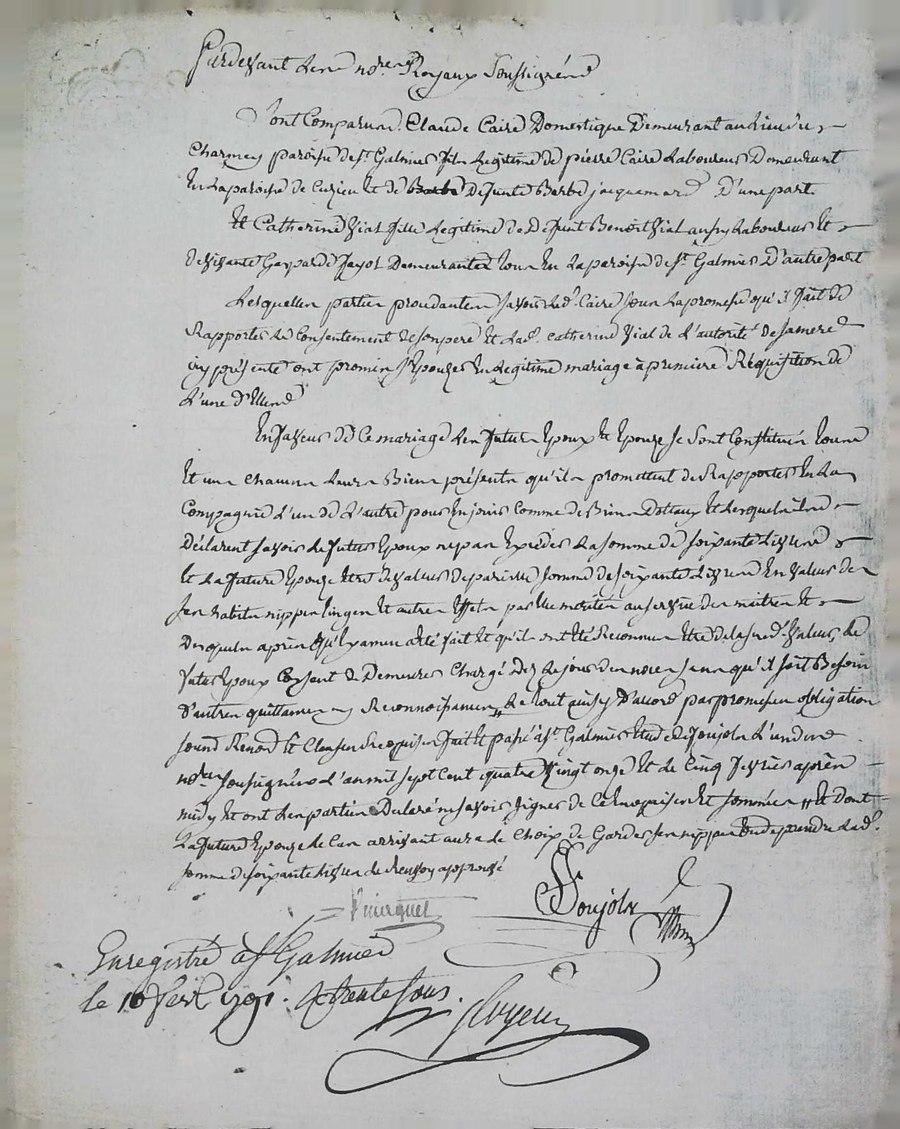 Pardevant Les notres Royaux Soussignéns
Sont Comparuns Claude Caire Domestique Demeurant au Lieu de
Charmey paroisse de st. Galmier fils Legitime de pierre Caire Laboureur Demeurant
En La paroisse de Cuzieu et de Defunte Barbe jacquemard D'une part.
Et Catherine Vial fille Legitime de Defunt Benoit Vial aussy Laboureur Et
de vivante Gasparde Fayot Demeurantes tous En La paroisse de st. Galmier D'autre part
Lesquelles parties procedantes savoir led. Caire sous La promesse qu'il fait de
Rapporter Le Consentement de son pere Et Lad. Catherine Vial de L'autorité de sa mere
icy présente ont promis s'Epouzer En Legitime mariage à premiere Requisition de
L'une d'Elles
En faveur de Ce mariage Les futurs Epoux Et Epouze se sont Constitués tous
Et un chacuns Leurs Biens présents qu'ils promettent de Rapporter En La
Compagnie L'un de L'autre pour En jouir Comme de Biens Dottaux Et Lesquels ils
Déclarent savoir Le futur Epoux ne pas Exceder La somme de soixante Livres
Et La future Epouze Etre de valeur de pareille somme de soixante Livres En valeur de
ses habits nippes Linges Et autres Effets par Elle au service des maitres Et
Desquels après qu'Examen a été fait Et qu'ils ont été Reconnus Etre de La susd. valeur, Le
futur Epoux Consent de Demeurer Chargé Dez Le jour des noces sans qu'il soit Besoin
D'autres quittances ny Reconnoissances, Le tout ainsy D'accord par promesses obligation
soumd. Renond. Et Clauses Requises fait Et passé à st. Galmier Etude de soujols L'un des
nores soussignés L'an mil sept Cent quatre vingt onze Et Le Cinq fevrier après
midy Et ont Les parties Declaré ne savoir signer de Ce Enquises Et sommées Et Dont
La future Epouze Le Cas arrivant aura Le Choix de Garder ses nippes ou de prendre Lad.
somme de soixante Livres approuvé
Soujols
Enregistré a St Galmier
le 10 fevr. 1791. R trente sous.